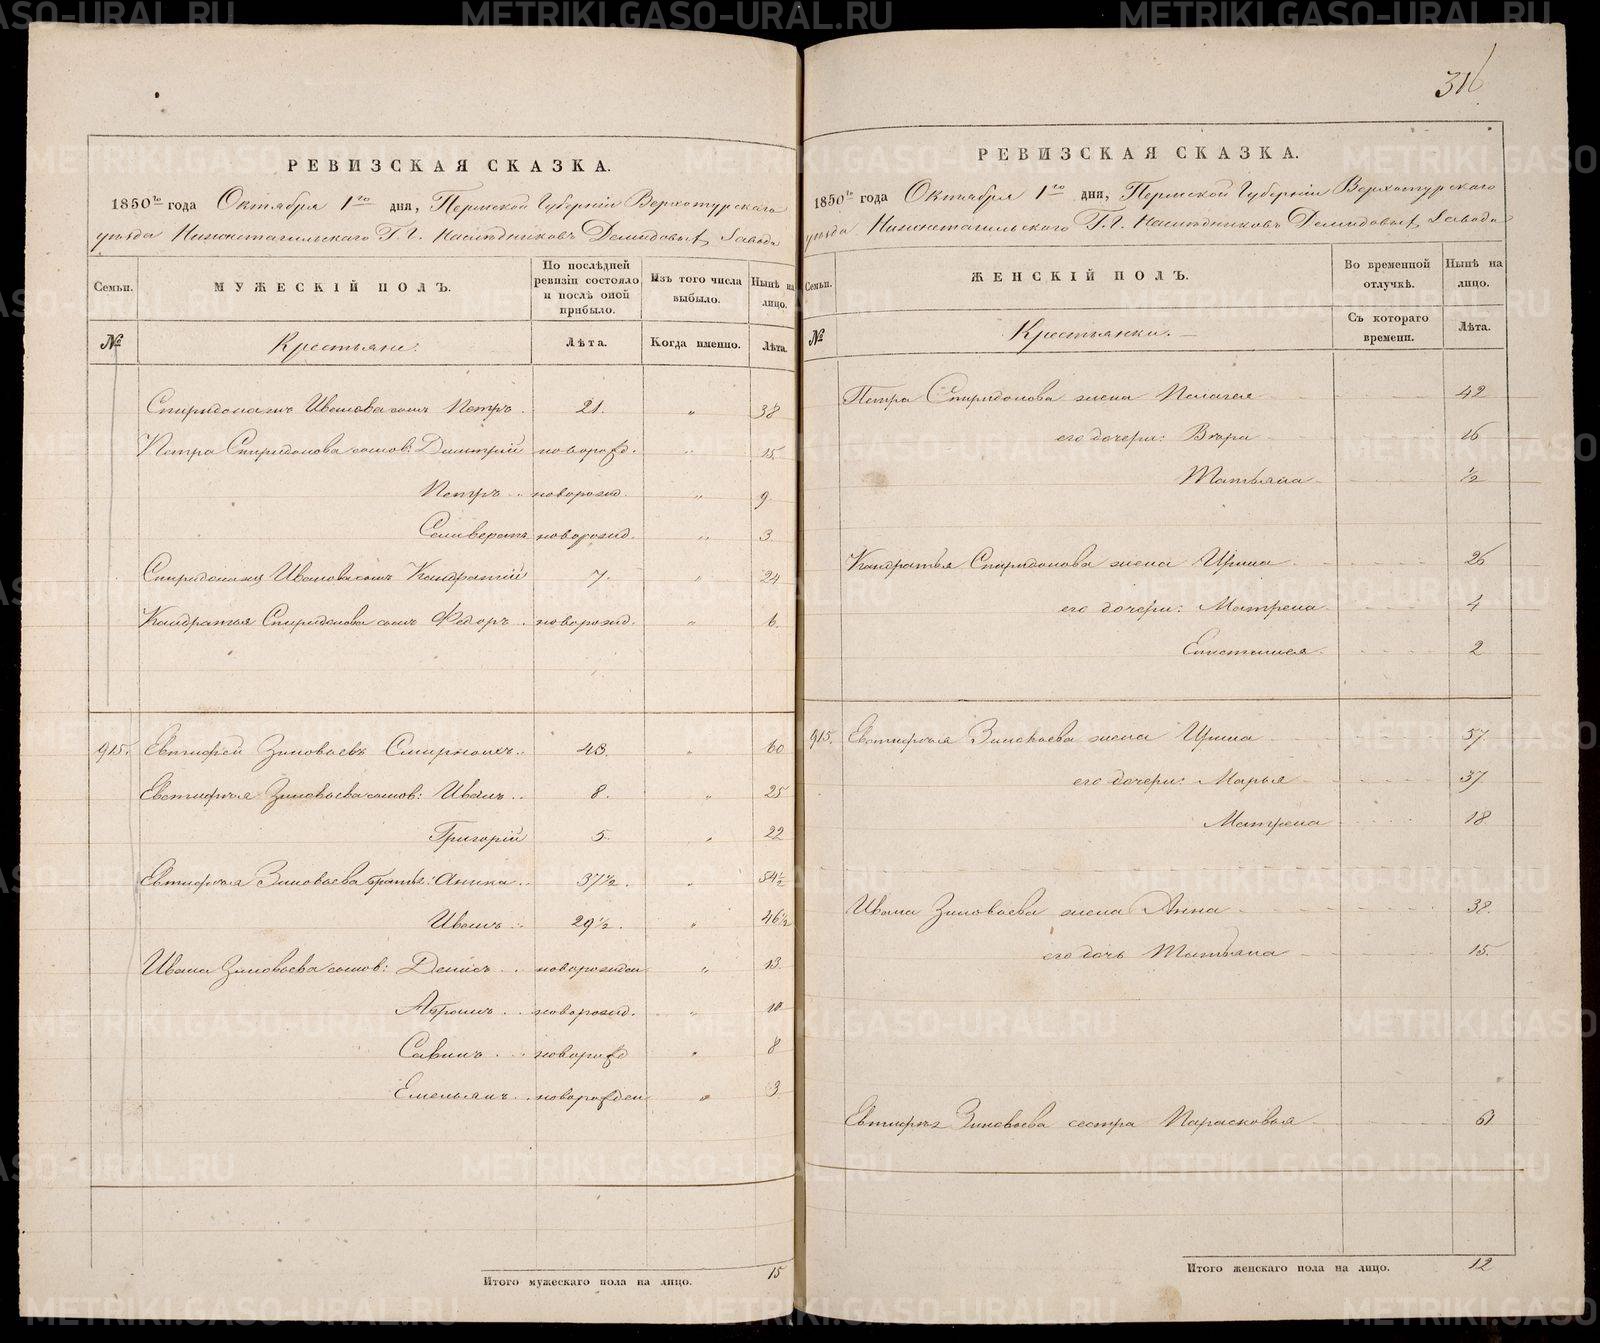 316
РЕВИЗСКАЯ СКАЗКА.
1850го года Октября 1го дня, Пермской Губерніи Верхотурскаго
уѣзда Нижнетагильскаго Г. Г. Наслѣдниковъ Демидовыхъ Завода
Семьи.
МУЖЕСКІЙ ПОЛЪ.
По послѣдней ревизіи состояло и послѣ оной прибыло.
Изъ того числа выбыло.
Нынѣ на лицо.
№
Крестьяне.
Лѣта.
Когда именно.
Лѣта.
Спиридона Иванова сынъ Петръ. 21. " 38
Петра Спиридонова сынов: Дмитрій новорожд. " 15.
Петръ новорожд. " 9.
Селиверстъ новорожд. " 3.
Спиридона Иванова сынъ Кандратій 7. " 24
Кандратья Спиридонова сынъ Федоръ новорожд. " 6.
915. Евтифей Зиновьевъ Смирныхъ 43. " 60
Евтифѣя Зиновьева сынов: Иванъ 8. " 25
Григорій 5. " 22
Евтифѣя Зиновьева братья: Аника 37½. " 54½
Иванъ 29½. " 46½
Ивана Зиновьева сынов: Денисъ новорожден " 13.
Абрамъ новорожд. " 10
Савинъ новорожд " 8
Емельянъ новорожден " 3
Итого мужескаго пола на лицо. 15
РЕВИЗСКАЯ СКАЗКА.
1850го года Октября 1го дня, Пермской Губерніи Верхотурскаго
уѣзда Нижнетагильскаго Г. Г. Наслѣдниковъ Демидовыхъ Завода
Семьи.
ЖЕНСКІЙ ПОЛЪ.
Во временной отлучкѣ.
Нынѣ на лицо.
№
Крестьянки.
Съ котораго времени.
Лѣта.
Петра Спиридонова жена Пелагея 42
его дочери: Вѣра 16
Татьяна ½
Кандратья Спиридонова жена Ирина 26
его дочери: Матрена 4
Епистимея 2
915. Евтифѣя Зиновьева жена Ирина 57
его дочери: Марья 37
Матрена 18
Ивана Зиновьева жена Анна 38.
его дочь Татьяна 15.
Евтифѣя Зиновьева сестра Парасковья 61
Итого женскаго пола на лицо. 12
METRIKI.GASO-URAL.RU